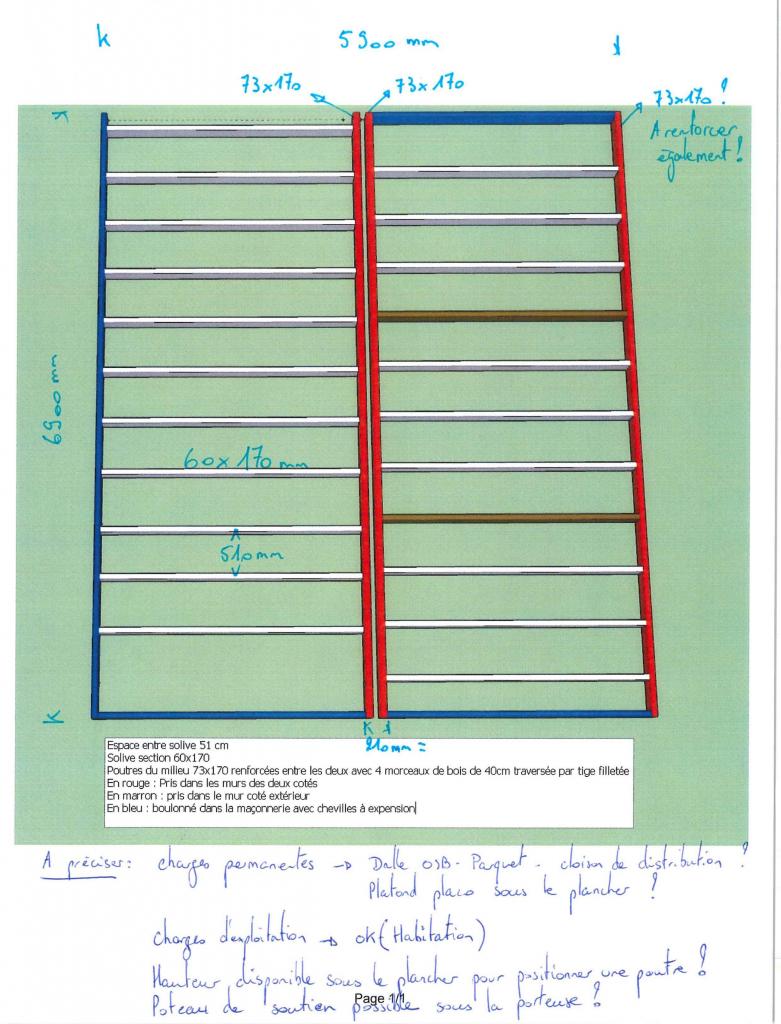 5900 mm
73x170
73x170
73x170 !
A renforcer
également !
6900 mm
60x170 mm
510mm
210mm =
Espace entre solive 51 cm
Solive section 60x170
Poutres du milieu 73x170 renforcées entre les deux avec 4 morceaux de bois de 40cm traversée par tige filletée
En rouge : Pris dans les murs des deux cotés
En marron : pris dans le mur coté extérieur
En bleu : boulonné dans la maçonnerie avec chevilles à expension
A préciser : charges permanentes → Dalle OSB - Parquet - cloison de distribution !
Plafond placo sous le plancher !
Charges d'exploitation → OK (Habitation)
Hauteur disponible sous le plancher pour positionner une poutre !
Poteau de soutien possible sous la porteuse !
Page 1/1